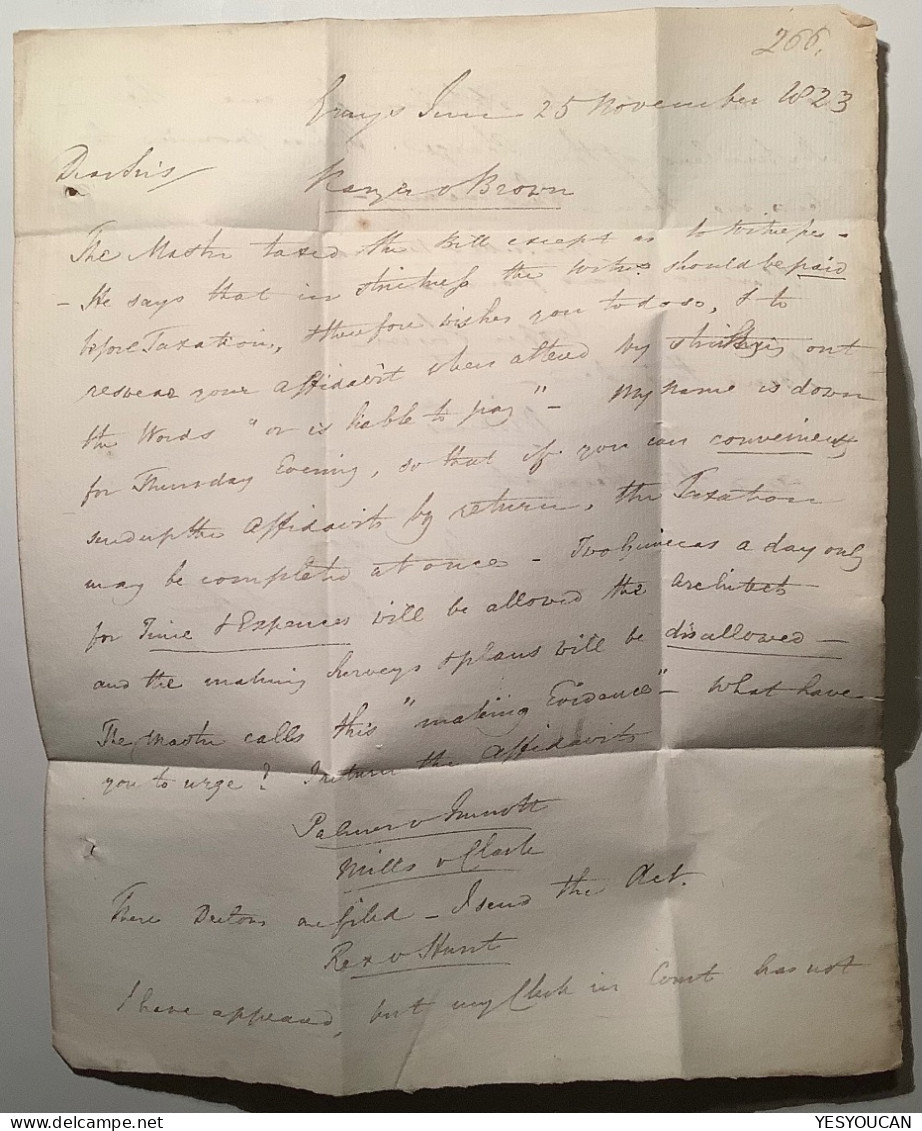 266.
Grays Inn 25 November 1823
Dear Sirs
v Brown
The Master taxed the Bill except as to Witnesses -
- He says that in strictness the Witns. should be paid
before Taxation, & therefore wishes you to do so, & to
reswear your Affidavit when altered by striking out
the Words "or is liable to pay" - My Name is down
for Thursday Evening, so that if you can conveniently
send up the Affidavits by return, the Taxation
may be completed at once - Two Guineas a day only
for Time & Expences will be allowed the Architect
and the making Surveys & plans will be disallowed -
The Master calls this "making Evidence" - What have
you to urge? I return the Affidavits
Palmer v
Mills v Clark
These are filed - I send the Act.
Rex v Hunt
I have appeared, but my Clerk in Court has not
YESYOUCAN